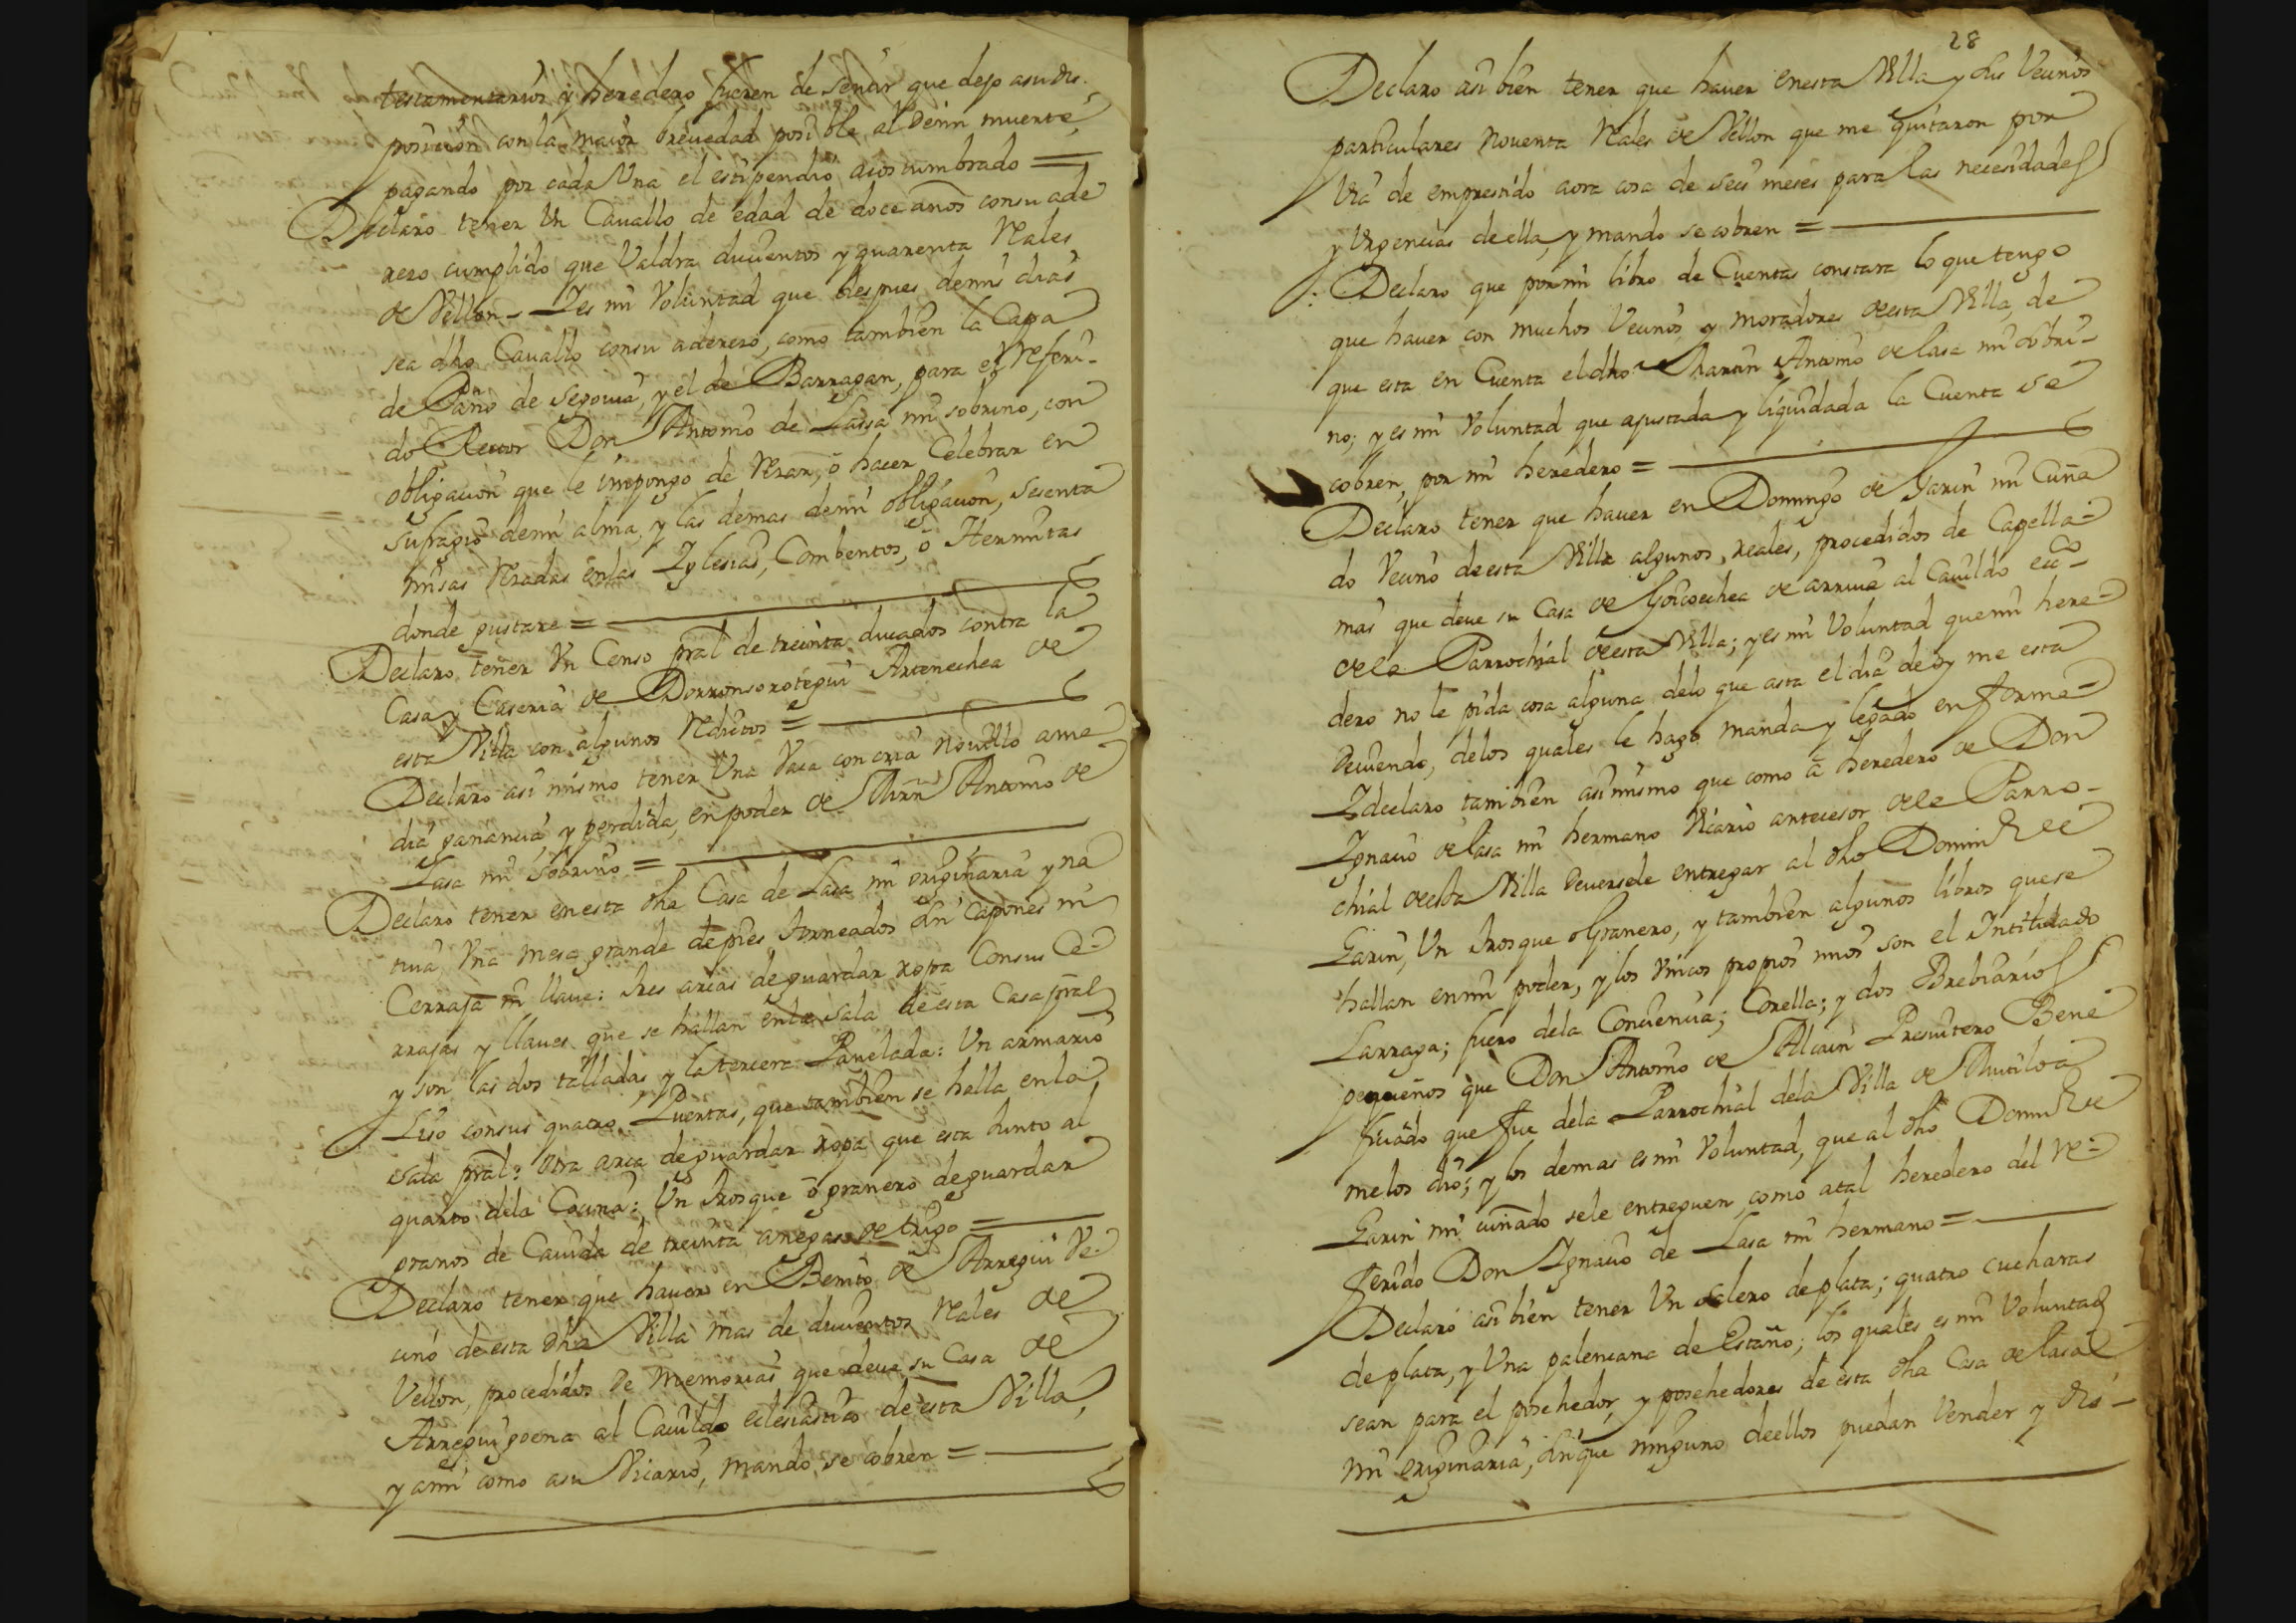 testamentarios y heredero fueren de sentir que dejo a su dis-
posicion con la maior brevedad posible, al de mi muerte,
pagando por cada Una el estipendio acostumbrado =
Declaro tener Un Cauallo de edad de doce años con su ade
rezo cumplido que Valdra ducientos y quarenta Rales
de Vellon - Y es mi Voluntad que despues de mis dias
sea dho Cauallo con su aderezo, como tambien la Capa
de Paño de Segovia, y el de Barragan, para el Referi-
do Rector Don Antonio de Lassa mi sobrino, con
obligacion que le impongo de Rezar, o hacer Celebrar en
sufragio de mi alma, y las demas de mi obligacion, sesenta
misas Rezadas en las Yglesias, Combentos, o Hermitas
donde gustare =
Declaro tener Vn Censo pral de treinta ducados contra la
Casa y Caseria de Dorronsorotegui Artenechea de
esta Villa con algunos Reditos =
Declaro asi mismo tener Una Vaca con cria novillo a me
dia ganancia, y perdida, en poder de Mrn Antonio de
Lasa mi sobrino =
Declaro tener en esta dha Casa de Lasa mi originaria y na
tiua, Vna mesa grande de pies torneados sin capones ni
Cerraja ni llaue: tres arcas de guardar ropa con sus Ce-
rrajas y llaues que se hallan en la sala de esta Casa pral
y son las dos talladas y la tercera Panelada: Un armario
Liso con sus quatro Puertas, que tambien se halla en la
sala pral: Otra arca de guardar ropa que esta Junto al
quarto de la Cocina: Un trosque o granero de guardar
granos de Cauida de treinta anegas de trigo =
Declaro tener que hauer en Benito de Arregui Ve-
cino de esta dha Villa mas de ducientos Rales de
Vellon, procedidos de Memorias que deue su Casa de
Arregui goena al Cauildo eclesiastico de esta Villa,
y a mi como a su Vicario, mando se cobren =
28
Declaro asi bien tener que hauer en esta Villa y sus Vecinos
particulares Nouenta Rales de Vellon que me quitaron por
Via de emprestido aora cosa de seis meses para las necesidades
y Urgencias de ella, y mando se cobren =
Declaro que por mi libro de Cuentas constara lo que tengo
que hauer con muchos Vecinos, y moradores de esta Villa, de
que esta en Cuenta el dho Martin Antonio de Lasa mi sobri-
no; y es mi Voluntad que ajustada y liquidada la Cuenta se
cobren, por mi heredero =
Declaro tener que hauer en Domingo de Garin mi Cuña
do Vecino de esta Villa algunos reales, procedidos de Capella-
nias que deue su Casa de Goicoechea de arriua al Cauildo ecco-
de la Parrochial de esta Villa; y es mi Voluntad que mi here-
dero no le pida cosa alguna de lo que asta el dia de oy me esta
Deuiendo, de los quales le hago manda y legado en forma-
Y declaro tambien asi mismo que como a heredero de Don
Ygnacio de Lasa mi hermano Vicario antecesor de la Parro-
chial de esta Villa deuersele entregar al dho Domin de
Garin, Un trosque o Granero, y tambien algunos libros que se
hallan en mi poder, y los Vnicos propios mios son el Intitulado
Larraga; fuero de la Conciencia; Corella; y dos Brebiarios
pequeños que Don Antonio de Alcain Presuitero Bene
ficiado que fue de la Parrochial de la Villa de Mutiloa
me los dio; y los demas es mi Voluntad, que al dho Domin de
Garin mi cuñado se le entreguen como a tal heredero del Re-
ferido Don Ygnacio de Lasa mi hermano =
Declaro asi bien tener Un salero de plata; quatro cucharas
de plata, y Una palenciana de Estaño; los quales es mi Voluntad
sean para el posehedor, y posehedores de esta dha Casa de Lasa
mi originaria, sin que ninguno de ellos puedan Vender y dis-